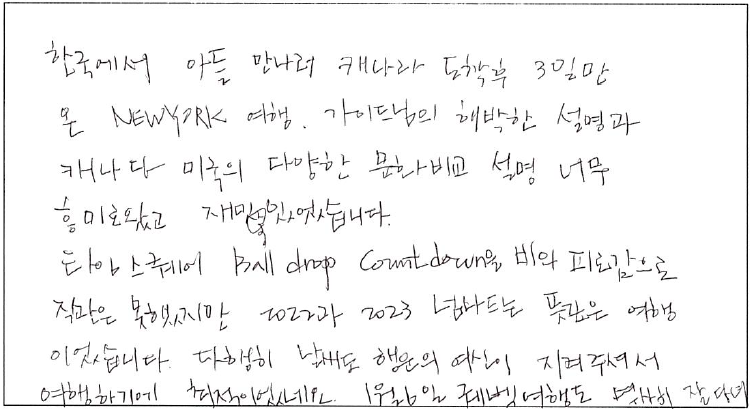 한국에서 아들 만나러 캐나다 도착후 3일만
온 NEWYORK 여행. 가이드님의 해박한 설명과
캐나다 미국의 다양한 문화비교 설명 너무
흥미로왔고 재미있었습니다.
타임스퀘어 Ball drop Countdown을 비와 피로감으로
직관은 못했지만 2022과 2023 넘나드는 뜻깊은 여행
이었습니다. 다행히 날씨도 행운의 여신이 지켜주셔서
여행하기에 최적이었네요. 1월6일 퀘벡여행도 무사히 잘 다녀